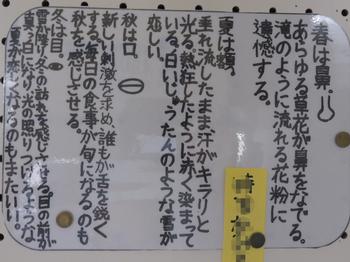 春は鼻。
あらゆる草花が鼻をなでる。
滝のように流れる花粉に
遺憾する。
夏は額。
垂れ流したまま汗がキラリと
光る。熱狂したように赤く染まって
いる。白いじゅうたんのような雪が
恋しい。
秋は口。
新しい刺激を求め、誰もが舌を鋭く
する。毎日の食事が旬になるのも
秋を感じさせる。
冬は目。
雪が降け、冬の訪れを感じさせる。目の前が
真っ白になり、光の照りつけるような
夏が恋しくなるのもまたいい。